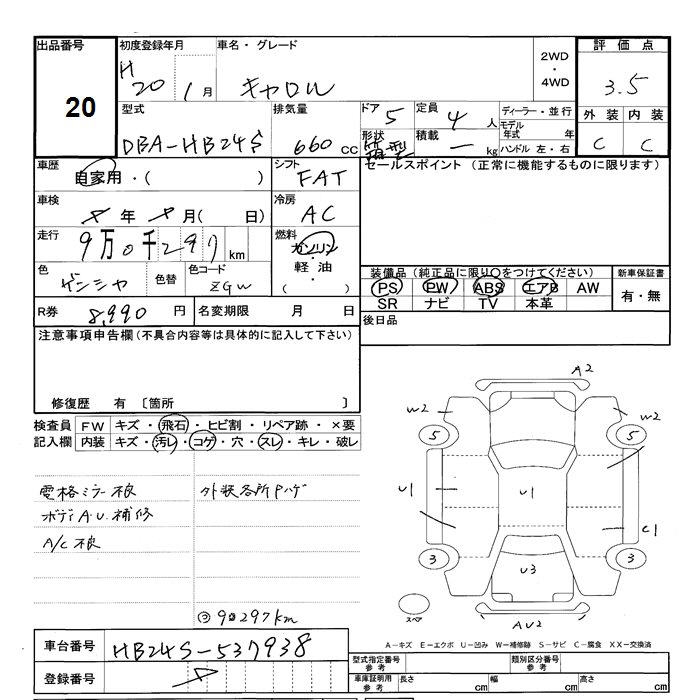 出品番号
20
初度登録年月
H 20 1月
車名・グレード
キャロル
2WD
・
4WD
評価点
3.5
外装 内装
C C
型式
DBA-HB24S
排気量
660cc
ドア
5
形状
定員
4人
積載
— kg
ディーラー・並行
モデル年式 年
ハンドル 左・右
車歴
自家用・( )
シフト
FAT
セールスポイント (正常に機能するものに限ります)
車検
年 月( 日)
冷房
AC
走行
9万0千297km
燃料
ガソリン
軽油
・
( )
色
ゲンシャ
色替
色コード
ZGW
装備品 (純正品に限り○をつけてください)
PS PW ABS エアB AW
SR ナビ TV 本革
新車保証書
有・無
R券
8,990円
名変期限 月 日
後日品
注意事項申告欄 (不具合内容等は具体的に記入して下さい)
修復歴 有 〔箇所 〕
検査員
記入欄
FW キズ・飛石・ヒビ割・リペア跡・×要
内装 キズ・汚レ・コゲ・穴・スレ・キレ・破レ
電格ミラー不良
外装各所Pハゲ
ボディA.U.補修
A/C不良
90297km
A2
W2
W2
5
5
U1
U1
C1
3
3
U3
スペア
AU2
A－キズ E－エクボ U－凹み W－補修跡 S－サビ C－腐食 XX－交換済
車台番号
HB24S-537938
登録番号
型式指定番号
参考
類別区分番号
参考
車庫証明用
参考
長さ cm
幅 cm
高さ cm